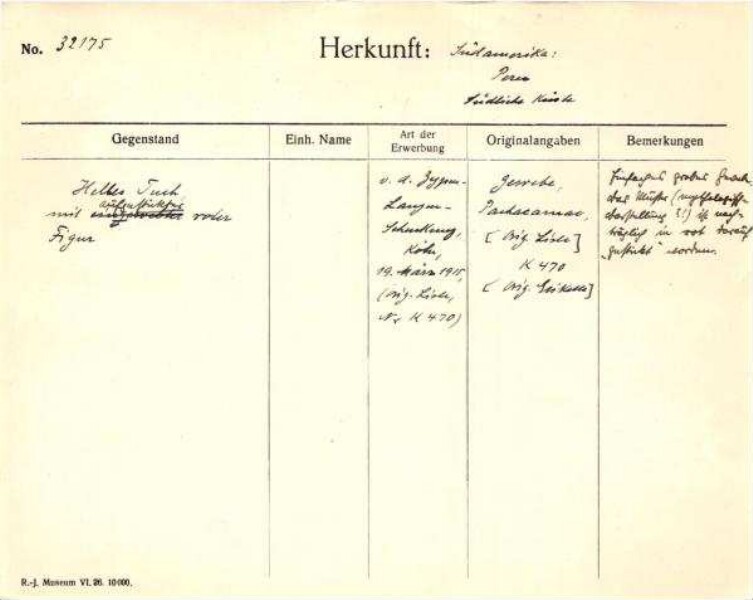 No. 32175
Herkunft: Südamerika:
Peru
Südliche Küste
Gegenstand
Einh. Name
Art der
Erwerbung
Originalangaben
Bemerkungen
Helles Tuch
aufgestickter
mit roter
Figur
v. d. Zypen-
Langen-
Schenkung,
Köln,
19. März 1915,
(Orig.-Liste,
Nr K 470)
Gewebe,
Pachacamac,
[Orig. Liste]
K 470
[Orig. Etikette]
grobes
Das Muster
darstellung ?!) ist nach-
träglich in rot darauf
„gestickt" worden.
R.-J. Museum VI. 26. 10000.